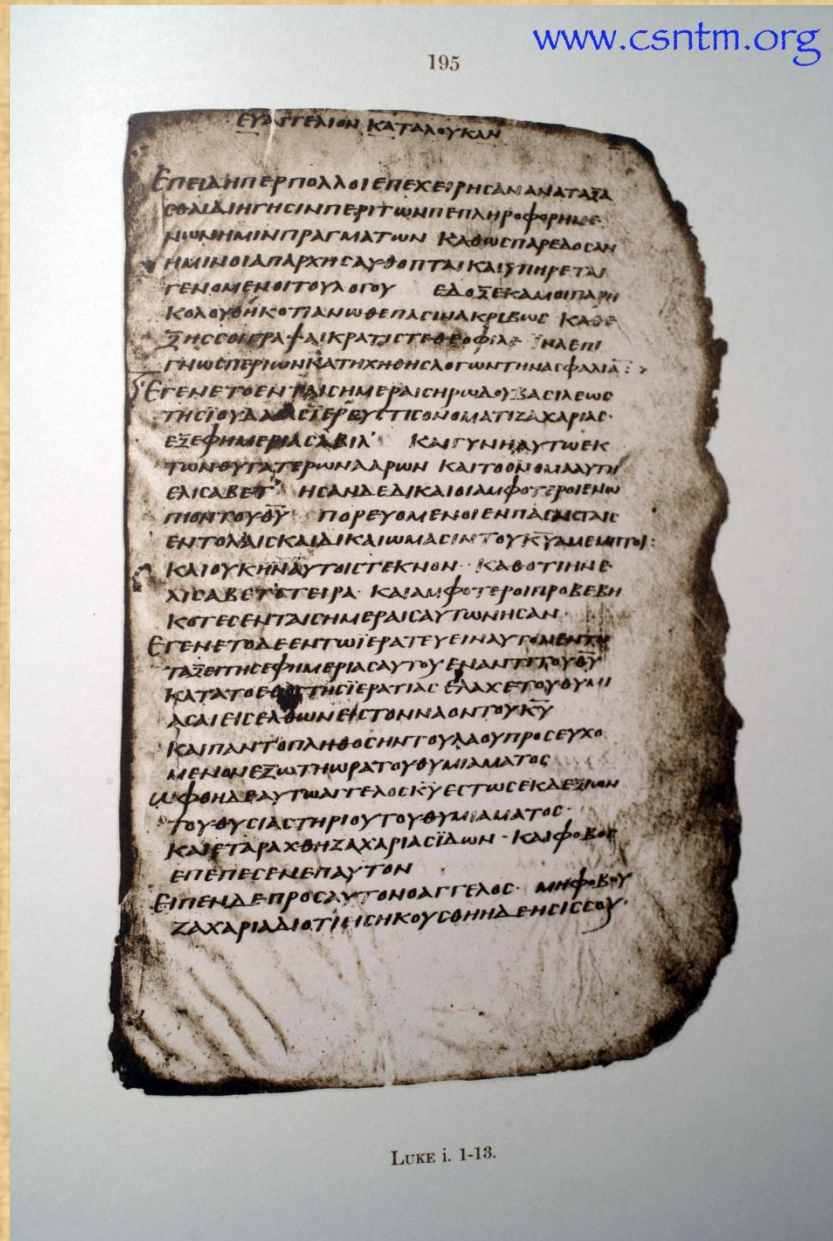 www.csntm.org
195
ΕΥΑΓΓΕΛΙΟΝ ΚΑΤΑ ΛΟΥΚΑΝ
ΕΠΕΙΔΗΠΕΡΠΟΛΛΟΙΕΠΕΧΕΙΡΗСΑΝΑΝΑΤΑΞΑ
СΘΑΙΔΙΗΓΗСΙΝΠΕΡΙΤΩΝΠΕΠΛΗΡΟΦΟΡΗΜΕ
ΝΩΝΗΜΙΝΠΡΑΓΜΑΤΩΝ ΚΑΘΩСΠΑΡΕΔΟСΑΝ
ΗΜΙΝΟΙΑΠΑΡΧΗСΑΥΘΟΠΤΑΙΚΑΙΥΠΗΡΕΤΑΙ
ΓΕΝΟΜΕΝΟΙΤΟΥΛΟΓΟΥ ΕΔΟΞΕΚΑΜΟΙΠΑΡΗ
ΚΟΛΟΥΘΗΚΟΤΙΑΝΩΘΕΠΑСΙΝΑΚΡΙΒΩС ΚΑΘΕ
ΞΗССΟΙΓΡΑΨΑΙΚΡΑΤΙСΤΕΘΕΟΦΙΛΕ ΙΝΑΕΠΙ
ΓΝΩСΠΕΡΙΩΝΚΑΤΗΧΗΘΗСΛΟΓΩΝΤΗΝΑСΦΑΛΙΑ
ΕΓΕΝΕΤΟΕΝΤΑΙСΗΜΕΡΑΙСΗΡΩΔΟΥΒΑСΙΛΕΩС
ΤΗСΪΟΥΔΑΙΑСΪΕΡΕΥСΤΙСΟΝΟΜΑΤΙΖΑΧΑΡΙΑС·
ΕΞΕΦΗΜΕΡΙΑСΑΒΙΑ ΚΑΙΓΥΝΗΑΥΤΩΕΚ
ΤΩΝΘΥΓΑΤΕΡΩΝΑΑΡΩΝ ΚΑΙΤΟΟΝΟΜΑΑΥΤΗ
ΕΛΙСΑΒΕΤ ΗСΑΝΔΕΔΙΚΑΙΟΙΑΜΦΟΤΕΡΟΙΕΝΩ
ΠΙΟΝΤΟΥΘΥ ΠΟΡΕΥΟΜΕΝΟΙΕΝΠΑСΑΙСΤΑΙС
ΕΝΤΟΛΑΙСΚΑΙΔΙΚΑΙΩΜΑСΙΝΤΟΥΚΥΑΜΕΜΠΤΟΙ:
ΚΑΙΟΥΚΗΝΑΥΤΟΙСΤΕΚΝΟΝ· ΚΑΘΟΤΙΗΝΕ
ΛΙСΑΒΕΤСΤΕΙΡΑ· ΚΑΙΑΜΦΟΤΕΡΟΙΠΡΟΒΕΒΗ
ΚΟΤΕСΕΝΤΑΙСΗΜΕΡΑΙСΑΥΤΩΝΗСΑΝ·
ΕΓΕΝΕΤΟΔΕΕΝΤΩΪΕΡΑΤΕΥΕΙΝΑΥΤΟΝΕΝΤΗ
ΤΑΞΕΙΤΗСΕΦΗΜΕΡΙΑСΑΥΤΟΥΕΝΑΝΤΙΤΟΥΘΥ
ΚΑΤΑΤΟΕΘΟСΤΗСΪΕΡΑΤΙΑС ΕΛΑΧΕΤΟΥΘΥΜΙ
ΑСΑΙΕΙСΕΛΘΩΝΕΙСΤΟΝΝΑΟΝΤΟΥΚΥ
ΚΑΙΠΑΝΤΟΠΛΗΘΟСΗΝΤΟΥΛΑΟΥΠΡΟСΕΥΧΟ
ΜΕΝΟΝΕΞΩΤΗΩΡΑΤΟΥΘΥΜΙΑΜΑΤΟС
ΩΦΘΗΔΕΑΥΤΩΑΓΓΕΛΟСΚΥΕСΤΩСΕΚΔΕΞΙΩΝ
ΤΟΥΘΥСΙΑСΤΗΡΙΟΥΤΟΥΘΥΜΙΑΜΑΤΟС·
ΚΑΙΕΤΑΡΑΧΘΗΖΑΧΑΡΙΑСΪΔΩΝ· ΚΑΙΦΟΒΟС
ΕΠΕΠΕСΕΝΕΠΑΥΤΟΝ
ΕΙΠΕΝΔΕΠΡΟСΑΥΤΟΝΟΑΓΓΕΛΟС· ΜΗΦΟΒΟΥ
ΖΑΧΑΡΙΑΔΙΟΤΙΕΙСΗΚΟΥСΘΗΗΔΕΗСΙССΟΥ·
LUKE i. 1-13.